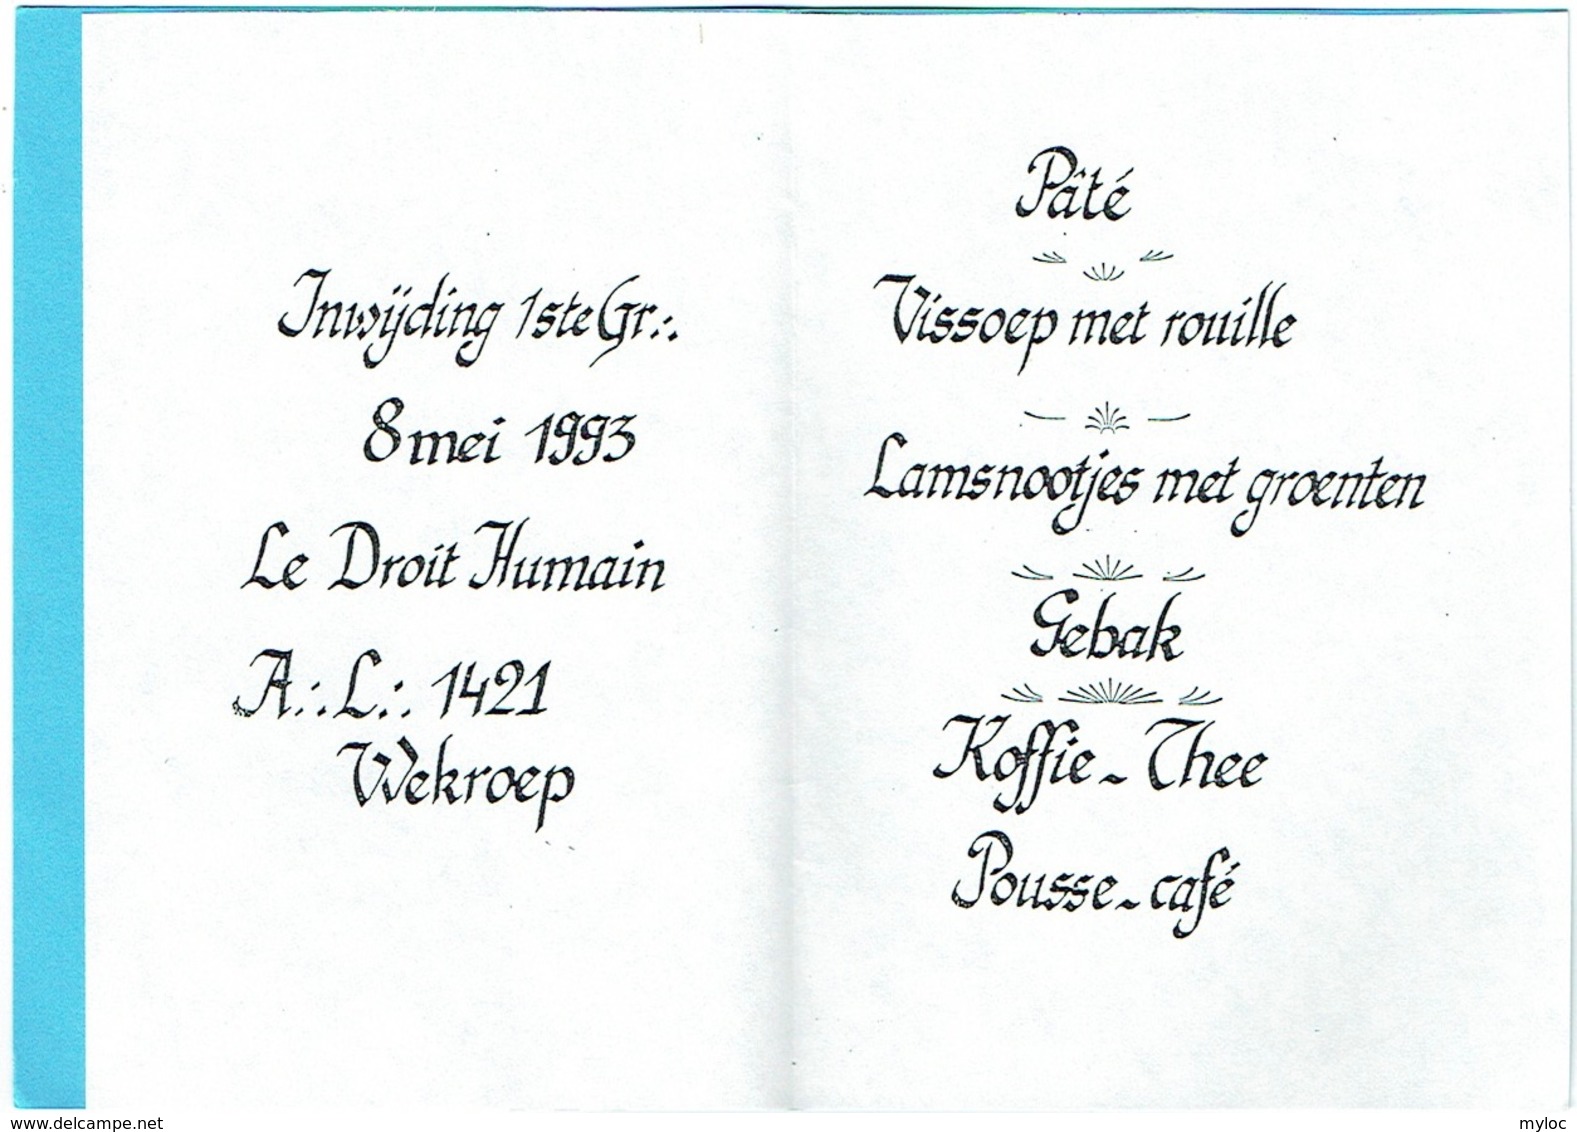 Inwijding 1ste Gr∴
8 mei 1993
Le Droit Humain
A∴ L∴ 1421
Wekroep
Pâté
Vissoep met rouille
Lamsnootjes met groenten
Gebak
Koffie - Thee
Pousse-café
www.delcampe.net
myloc